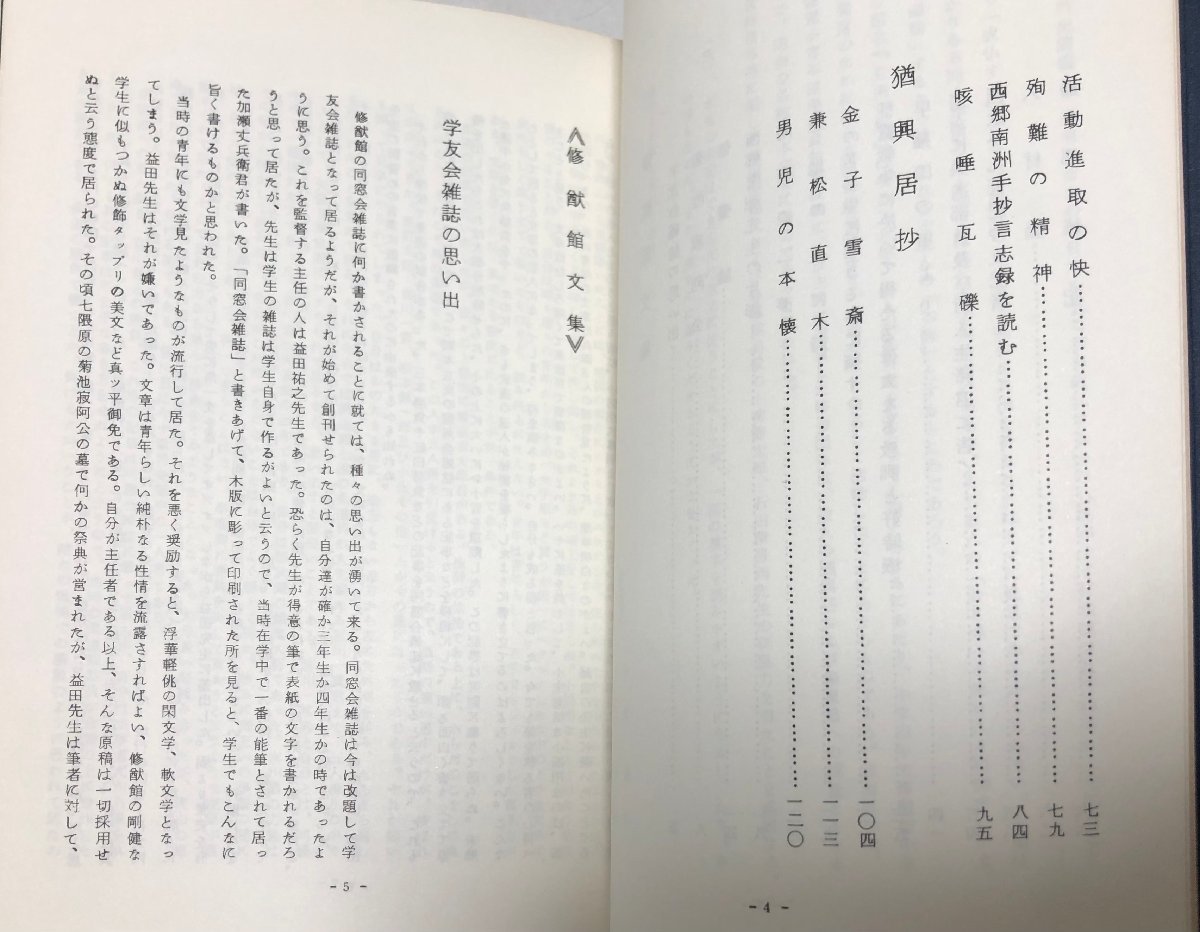 活動進取の快……………………七三
殉難の精神……………………七九
西郷南洲手抄言志録を読む……………………八四
咳唾瓦礫……………………九五
猶興居抄
金子雪斎……………………一〇四
兼松直木……………………一一三
男児の本懐……………………一二〇
- 4 -
《修猷館文集》
学友会雑誌の思い出
修猷館の同窓会雑誌に何か書かされることに就ては、種々の思い出が湧いて来る。同窓会雑誌は今は改題して学
友会雑誌となって居るようだが、それが始めて創刊せられたのは、自分達が確か三年生か四年生かの時であったよ
うに思う。これを監督する主任の人は益田祐之先生であった。恐らく先生が得意の筆で表紙の文字を書かれるだろ
うと思って居たが、先生は学生の雑誌は学生自身で作るがよいと云うので、当時在学中で一番の能筆とされて居っ
た加瀬丈兵衛君が書いた。「同窓会雑誌」と書きあげて、木版に彫って印刷された所を見ると、学生でもこんなに
旨く書けるものかと思われた。
当時の青年にも文学見たようなものが流行して居た。それを悪く奨励すると、浮華軽佻の閑文学、軟文学となっ
てしまう。益田先生はそれが嫌いであった。文章は青年らしい純朴なる性情を流露さすればよい、修猷館の剛健な
学生に似もつかぬ修飾タップリの美文など真ッ平御免である。自分が主任者である以上、そんな原稿は一切採用せ
ぬと云う態度で居られた。その頃七隈原の菊池寂阿公の墓で何かの祭典が営まれたが、益田先生は筆者に対して、
- 5 -